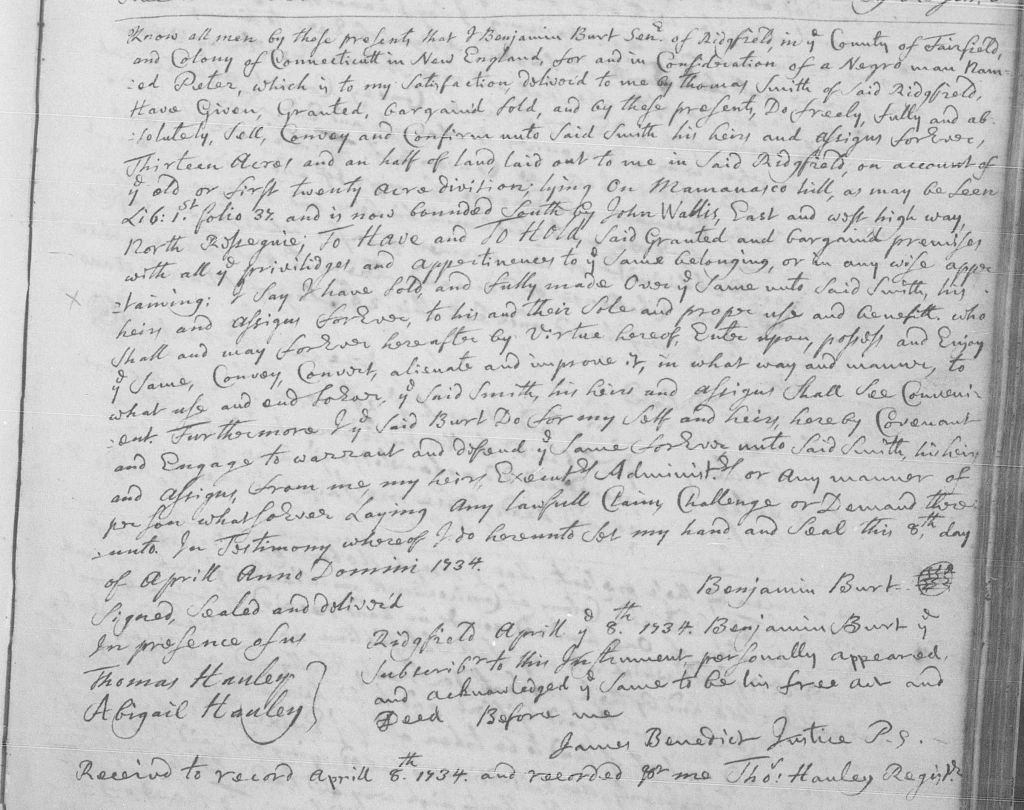 Know all men by these presents that I Benjamin Burt Senr. of Ridgfield, in ye County of Fairfield,
and Colony of Connecticutt in New England, for and in Consideration of a Negro man Nam-
:ed Peter, which is to my Satisfaction, deliver'd to me by Thomas Smith of Said Ridgfield,
Have Given, Granted, bargain'd Sold, and by these presents, Do freely, fully and ab-
:solutely, Sell, Convey and Confirm unto Said Smith his heirs and assigns forEver,
Thirteen Acres and an half of land, laid out to me in Said Ridgfield, on account of
ye old or first twenty acre division; lying On Mamanasco hill, as may be Seen
Lib: 1.st folio 37. and is now bounded South by John Wallis, East and west high way,
North Rossegnie; To Have and To Hold, Said Granted and bargain'd premises
with all ye privilidges and appertinences to ye Same belonging, or in any wise apper
:taining: I Say I have Sold and fully made Over ye Same unto Said Smith, his
heirs and assigns forEver, to his and their Sole and proper use and benefitt. who
Shall and may forEver hereafter by Virtue hereof, Enter upon, possess and Enjoy
ye Same, Convey, Convert, alienate and improve it, in what way and manner, to
what use and end SoEver, ye Said Smith, his heirs and assigns Shall See Conveni-
:ent. Furthermore I ye Said Burt Do for my Self and heirs, hereby Covenant
and Engage to warrant and defend ye Same forEver unto Said Smith, his heirs
and assigns, from me, my heirs, Executrs. Administrs. or any manner of
person whatSoEver Laying any lawfull Claim, Challenge or Demand there-
:unto. In Testimony whereof I do hereunto Set my hand and Seal this 8.th day
of Aprill Anno Domini 1734.
Benjamin Burt
Signed, Sealed and deliver'd
In presence of us
Thomas Hauley
Abigail Hauley
Ridgfield Aprill ye 8.th 1734. Benjamin Burt ye
Subscribr. to this Instrument, personally appeared,
and acknowledged ye Same to be his free act and
Deed Before me
James Benedict Justice P.s.
Receivd to record Aprill 8.th 1734. and recorded pr me Thos: Hauley Registr.